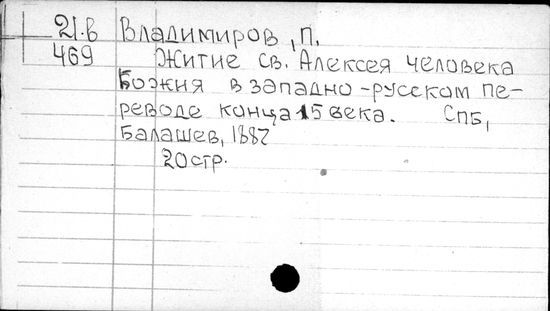 21.в Владимиров, П.
469 Житие св. Алексея человека
Божия в западно-русском пе-
реводе конца 15 века. СПб,
Балашев, 1887
20 стр.